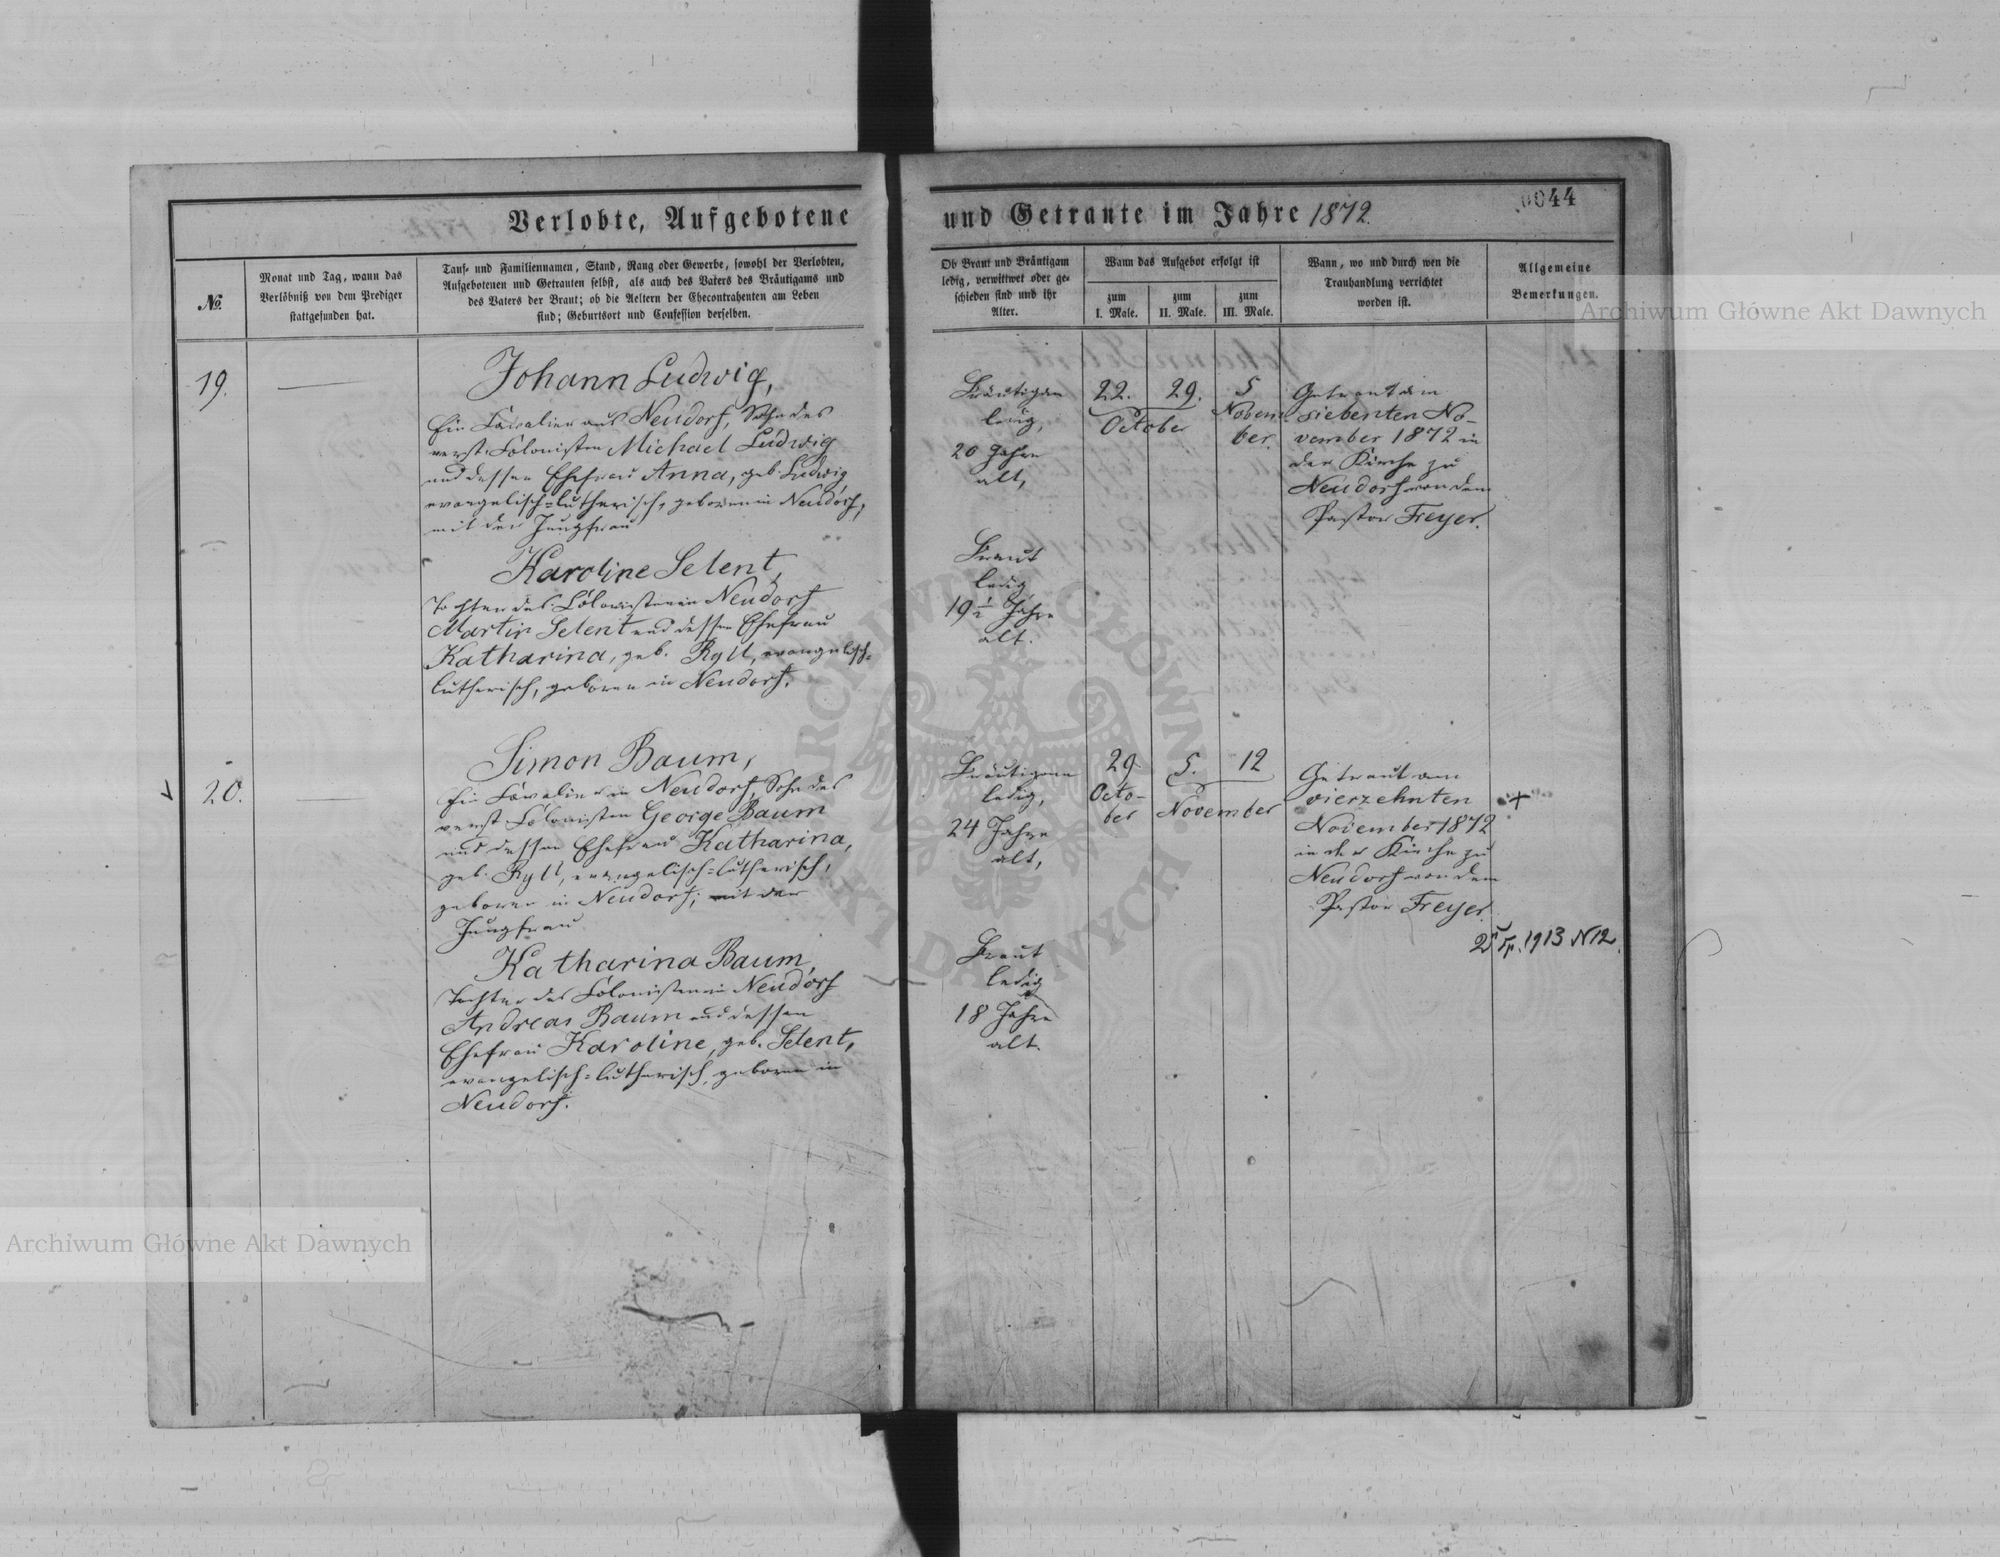 Verlobte, Aufgebotene
und Getraute im Jahre 1872.
0044
№.
Monat und Tag, wann das
Verlöbniß von dem Prediger
stattgefunden hat.
Tauf- und Familiennamen, Stand, Rang oder Gewerbe, sowohl der Verlobten,
Aufgebotenen und Getrauten selbst, als auch des Vaters des Bräutigams und
des Vaters der Braut; ob die Aeltern der Ehecontrahenten am Leben
sind; Geburtsort und Confession derselben.
Ob Braut und Bräutigam
ledig, verwittwet oder ge-
schieden sind und ihr
Alter.
Wann das Aufgebot erfolgt ist
zum
I. Male.
zum
II. Male.
zum
III. Male.
Wann, wo und durch wen die
Trauhandlung verrichtet
worden ist.
Allgemeine
Bemerkungen.
Archiwum Główne Akt Dawnych
19.
Johann Ludwig,
Ein Cavalier aus Neudorf, Sohn des
verst. Colonisten Michael Ludwig
und dessen Ehefrau Anna, geb. Ludwig,
evangelisch-lutherisch, geboren in Neudorf,
mit der Jungfrau
Karoline Selent,
Tochter des Colonisten in Neudorf
Martin Selent und dessen Ehefrau
Katharina, geb. Ryll, evangelisch-
lutherisch, geboren in Neudorf.
Bräutigam
ledig,
20 Jahre
alt,
Braut
ledig,
19 1/2 Jahre
alt.
22. 29.
October
5
Novem-
ber
Getraut am
siebenten No-
vember 1872 in
der Kirche zu
Neudorf von dem
Pastor Freyer.
20.
Simon Baum,
Ein Cavalier in Neudorf, Sohn des
verst. Colonisten George Baum
und dessen Ehefrau Katharina,
geb. Ryll, evangelisch-lutherisch,
geboren in Neudorf; mit der
Jungfrau
Katharina Baum,
Tochter des Colonisten in Neudorf
Andreas Baum und dessen
Ehefrau Karoline, geb. Selent,
evangelisch-lutherisch, geboren in
Neudorf.
Bräutigam
ledig,
24 Jahre
alt,
Braut
ledig
18 Jahre
alt.
29
Octo-
ber
5. 12
November
Getraut am
vierzehnten
November 1872
in der Kirche zu
Neudorf von dem
Pastor Freyer.
+
1913 N 12.
ARCHIWUM GŁÓWNE AKT DAWNYCH
Archiwum Główne Akt Dawnych